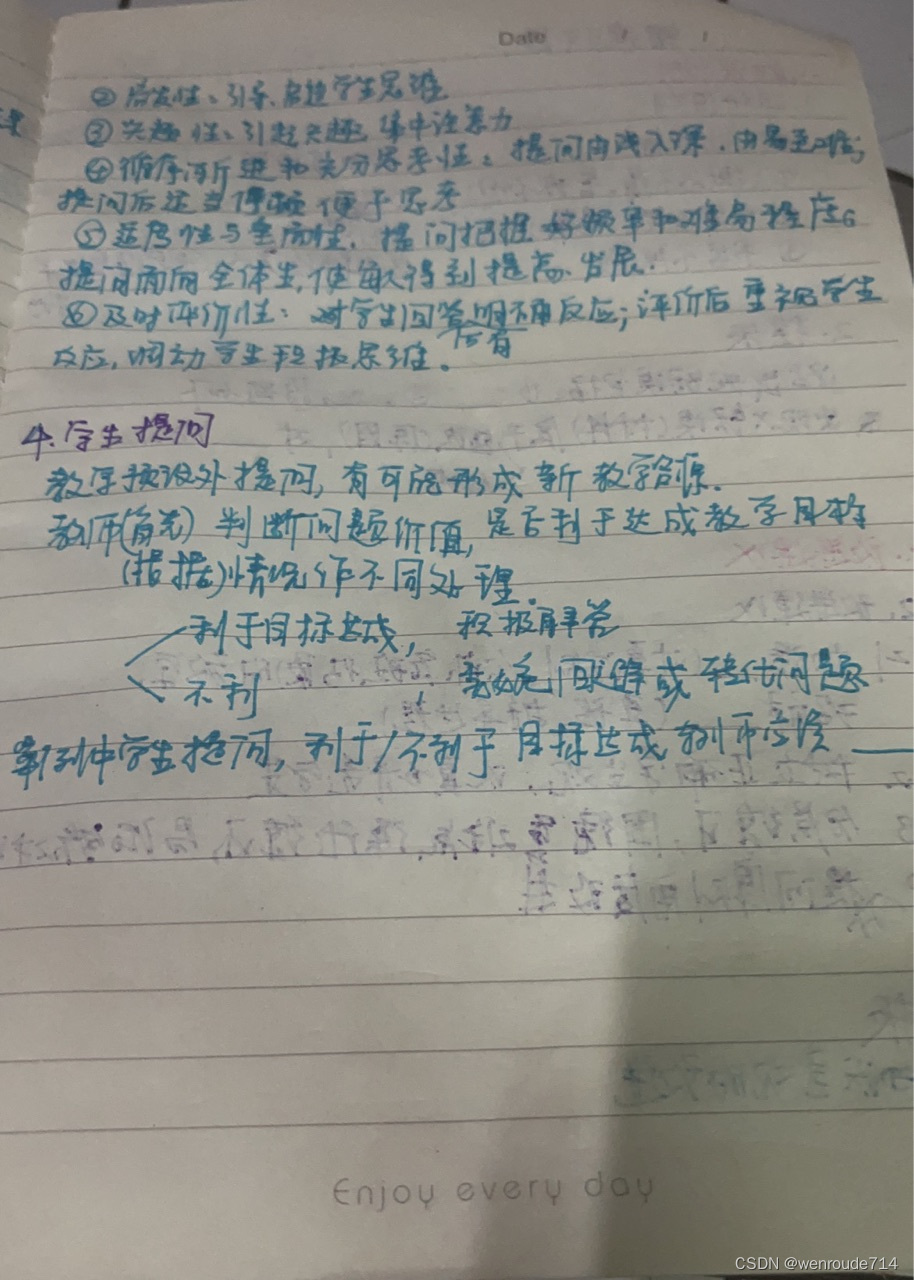 Date
②启发性：引导、启迪学生思维
③兴趣性：引起兴趣 集中注意力
④循序渐进和充分思考性：提问由浅入深，由易至难；
提问后适当停顿 便于思考
⑤适度性与全面性：提问把握好频率和难易程度。
提问面向全体生，使敏得到提高、发展.
⑥及时评价性：对学生回答明确反应；评价后重视学生
后有
反应，调动学生积极思维。
4.学生提问
教学预设外提问，有可能形成新教学资源.
教师(首先)判断问题价值，是否利于达成教学目标
(根据)情况作不同处理.
利于目标达成， 积极解答
不利， 委婉回避或转化问题
案例中学生提问，利于/不利于目标达成 教师应该 ——
Enjoy every day
CSDN @wenroude714